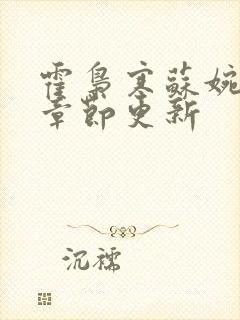 霍梟寒蘇婉
章節更新
沉穤